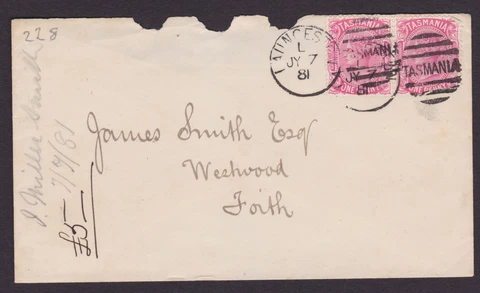 228
LAUNCEST
L
JY 7
81
TASMANIA
TASMANIA
TASMANIA
TASMANIA
JY 7
81
ONE PENNY
ONE PENNY
James Smith Esq
Westwood
Forth
J. Miller
7/7/81
£5